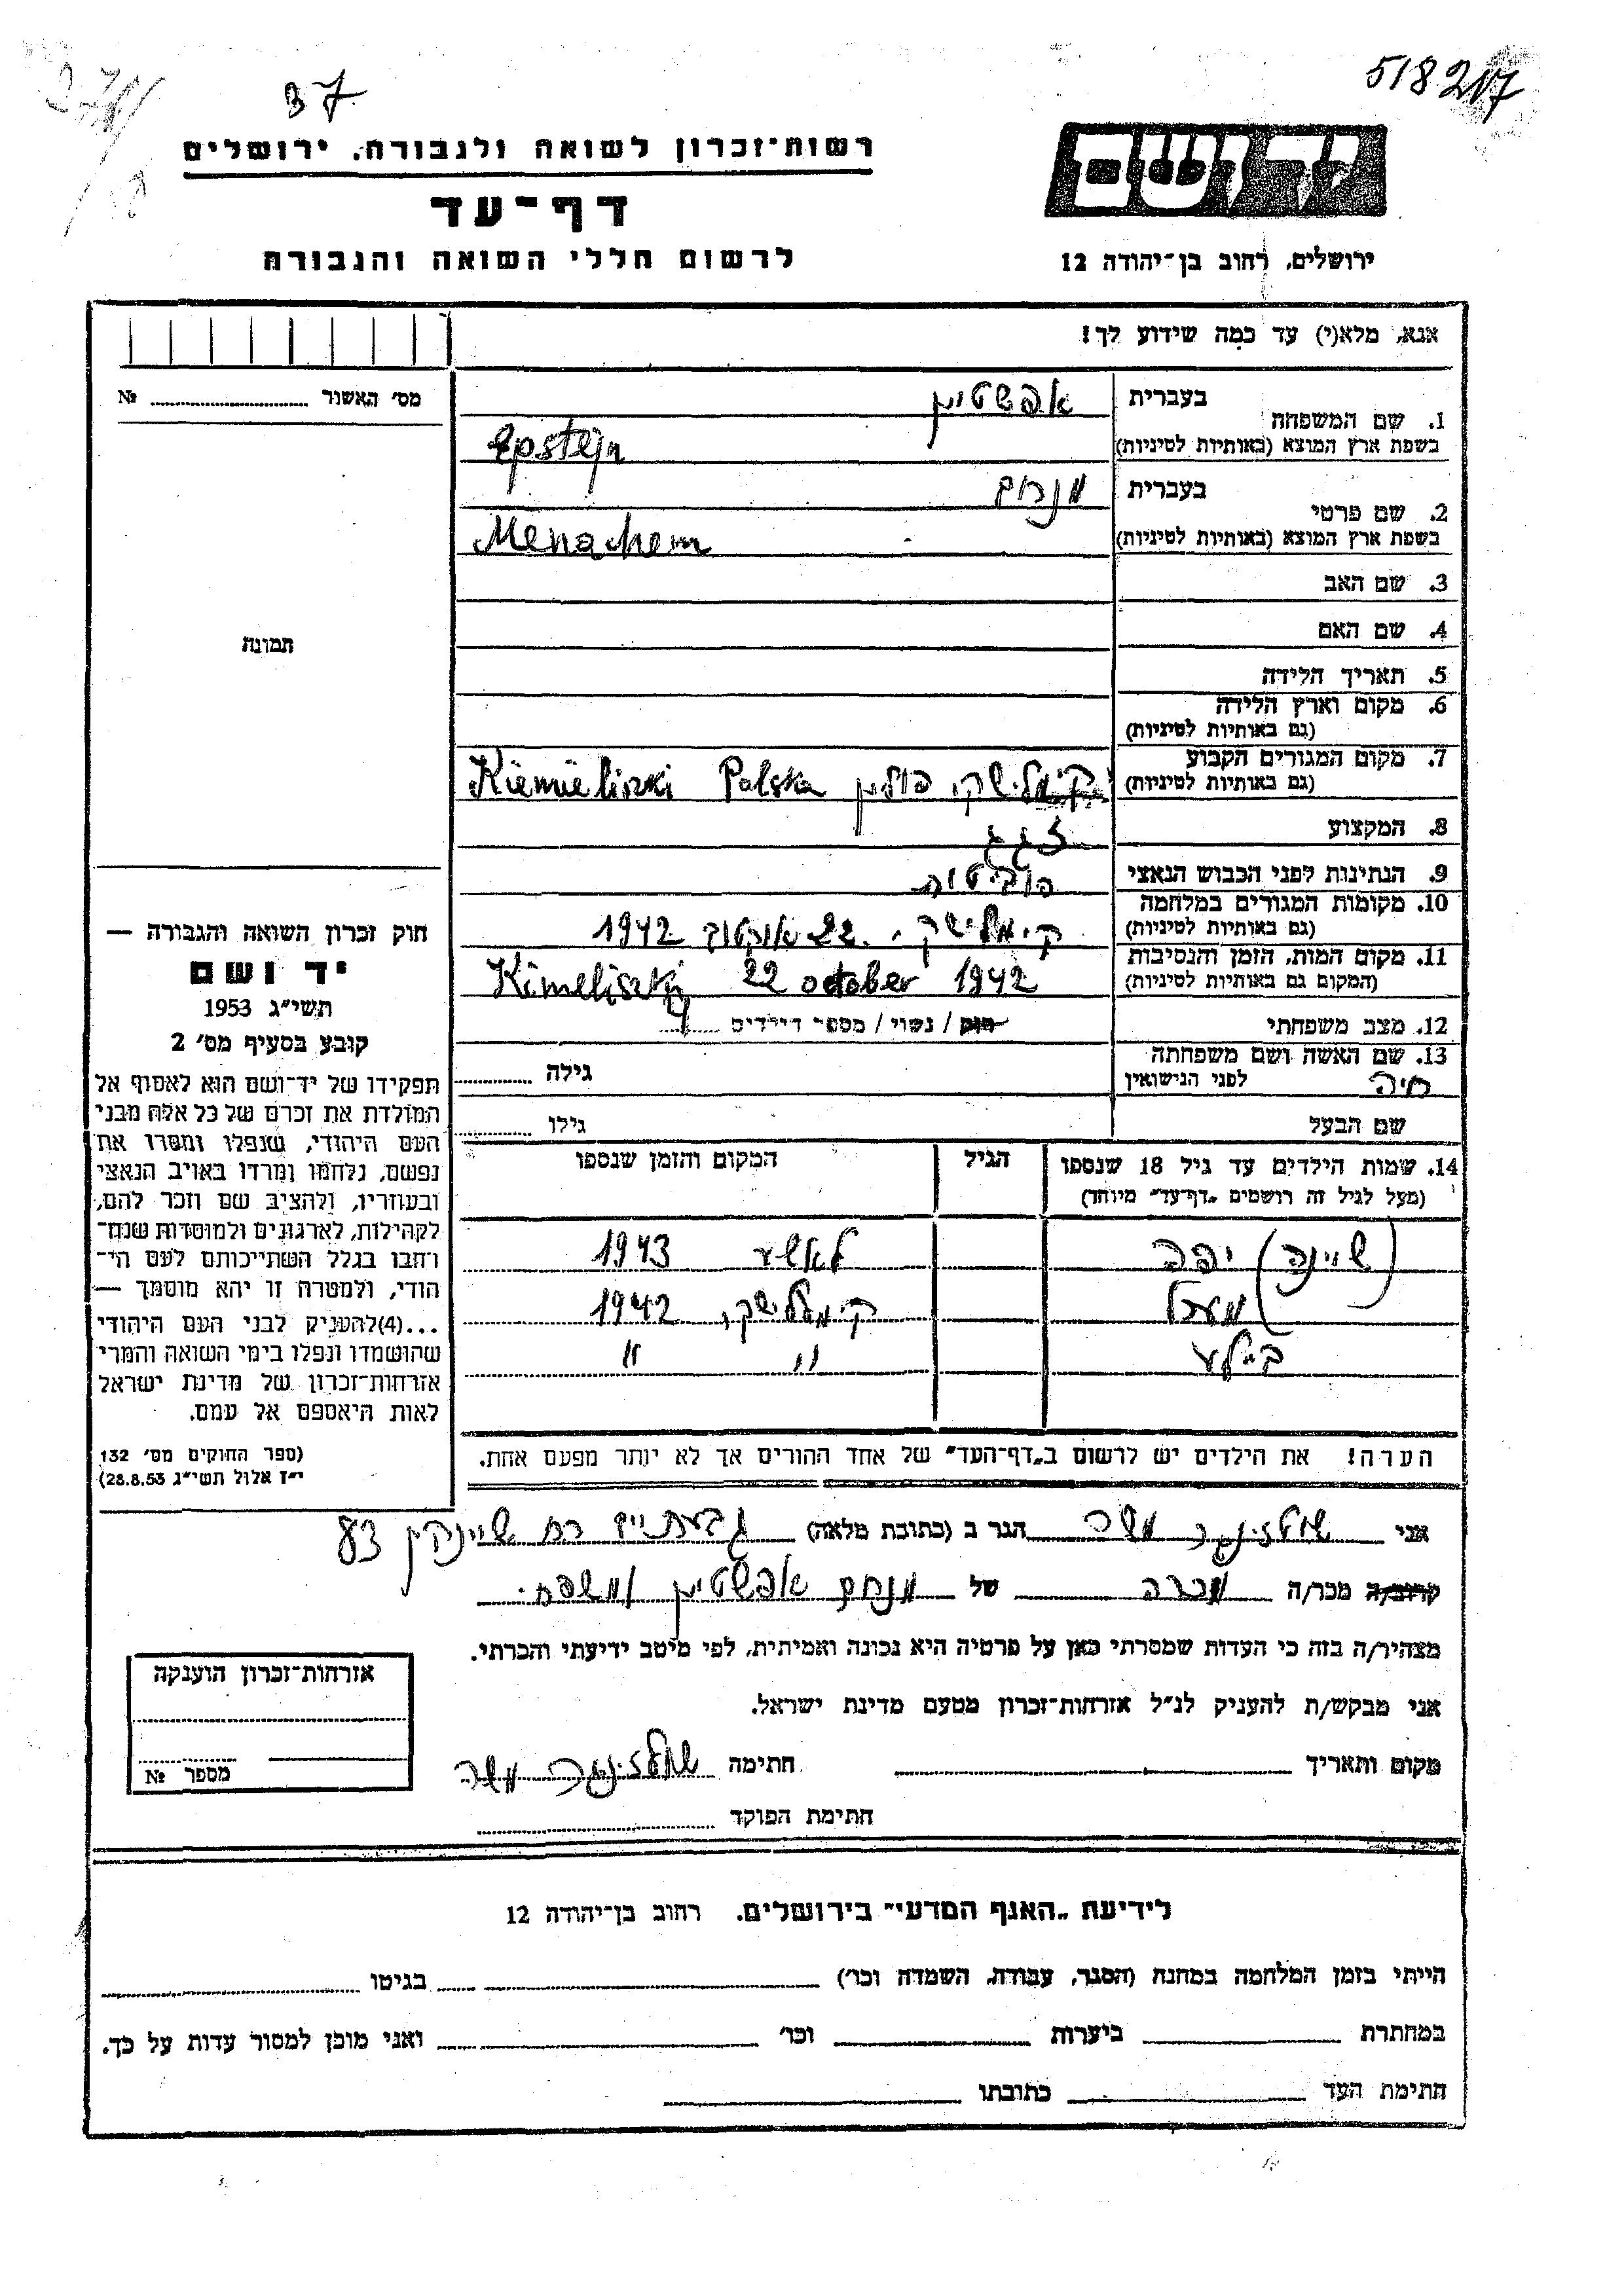 518217
37
יד ושם
רשות־זכרון לשואה ולגבורה, ירושלים
דף־עד
לרשום חללי השואה והגבורה
ירושלים, רחוב בן־יהודה 12
אנא, מלא(י) עד כמה שידוע לך!
מס׳ האשור № 
תמונה
1. שם המשפחה
בעברית אפשטיין
בשפת ארץ המוצא (באותיות לטיניות) Epstejn
2. שם פרטי
בעברית מנחם
בשפת ארץ המוצא (באותיות לטיניות) Menachem
3. שם האב
4. שם האם
5. תאריך הלידה
6. מקום וארץ הלידה
(גם באותיות לטיניות)
7. מקום המגורים הקבוע
(גם באותיות לטיניות) קימלישקי פולין Kiemieliszki Polska
8. המקצוע זגג
9. הנתינות לפני הכבוש הנאצי
10. מקומות המגורים במלחמה
(גם באותיות לטיניות) קימלישקי 22 אוקטובר 1942
11. מקום המות, הזמן והנסיבות
(המקום גם באותיות לטיניות) Kimeliszki 22 october 1942
12. מצב משפחתי רווק / נשוי / מספר הילדים
13. שם האשה ושם משפחתה
לפני הנישואין חיה גילה
שם הבעל גילו
14. שמות הילדים עד גיל 18 שנספו
(מעל לגיל זה רושמים „דף־עד” מיוחד)
הגיל
המקום והזמן שנספו
(שיינה) יפה 1943
קימלישקי 1942
ביילע " "
הערה! את הילדים יש לרשום ב„דף־העד” של אחד ההורים אך לא יותר מפעם אחת.
חוק זכרון השואה והגבורה —
יד ושם
תשי״ג 1953
קובע בסעיף מס׳ 2
תפקידו של יד־ושם הוא לאסוף אל
המולדת את זכרם של כל אלה מבני
העם היהודי, שנפלו ומסרו את
נפשם, נלחמו ומרדו באויב הנאצי
ובעוזריו, ולהציב שם וזכר להם,
לקהילות, לארגונים ולמוסדות שנח־
רבו בגלל השתייכותם לעם הי־
הודי, ולמטרה זו יהא מוסמך —
...(4) להעניק לבני העם היהודי
שהושמדו ונפלו בימי השואה והמרי
אזרחות־זכרון של מדינת ישראל
לאות היאספם אל עמם.
(ספר החוקים מס׳ 132
י״ז אלול תשי״ג 28.8.53)
אני הגר ב (כתובת מלאה) גבעתיים רח שיינקין 83
קרוב/ה מכר/ה מכרה של מנחם אפשטיין ומשפח.
מצהיר/ה בזה כי העדות שמסרתי כאן על פרטיה היא נכונה ואמיתית, לפי מיטב ידיעתי והכרתי.
אני מבקש/ת להעניק לנ״ל אזרחות־זכרון מטעם מדינת ישראל.
מקום ותאריך חתימה
חתימת הפוקד
אזרחות־זכרון הוענקה
מספר №
לידיעת „האגף המדעי” בירושלים, רחוב בן־יהודה 12
הייתי בזמן המלחמה במחנה (הסגר, עבודה, השמדה וכו׳) בגיטו
במחתרת ביערות וכו׳ ואני מוכן למסור עדות על כך.
חתימת העד כתובתו